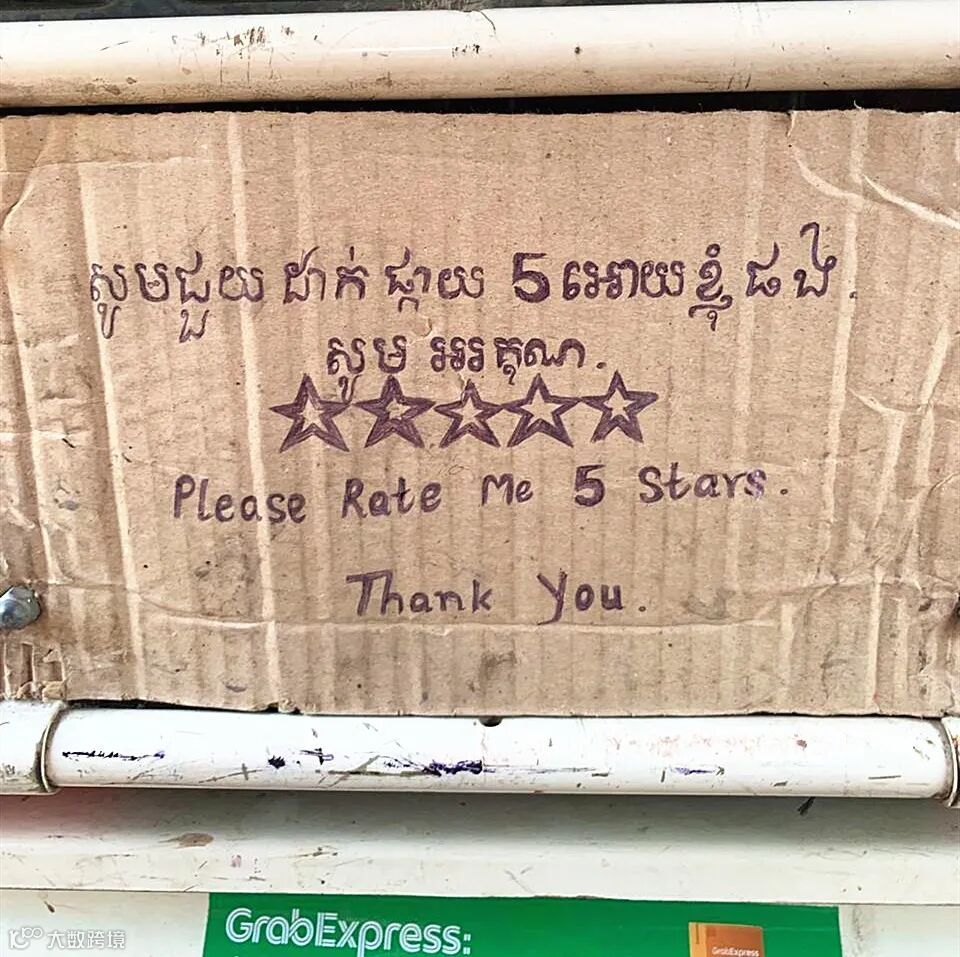 សូមជួយ ដាក់ ផ្កាយ 5 អោយ ខ្ញុំ ផង.
សូម អរគុណ.
Please Rate Me 5 Stars.
Thank You.
GrabExpress:
GrabExpress
大数跨境